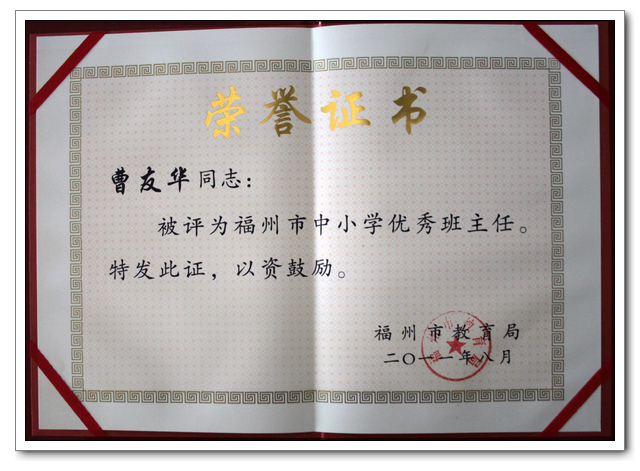 荣誉证书
曹友华同志：
被评为福州市中小学优秀班主任。
特发此证，以资鼓励。
福州市教育局
二〇一一年八月